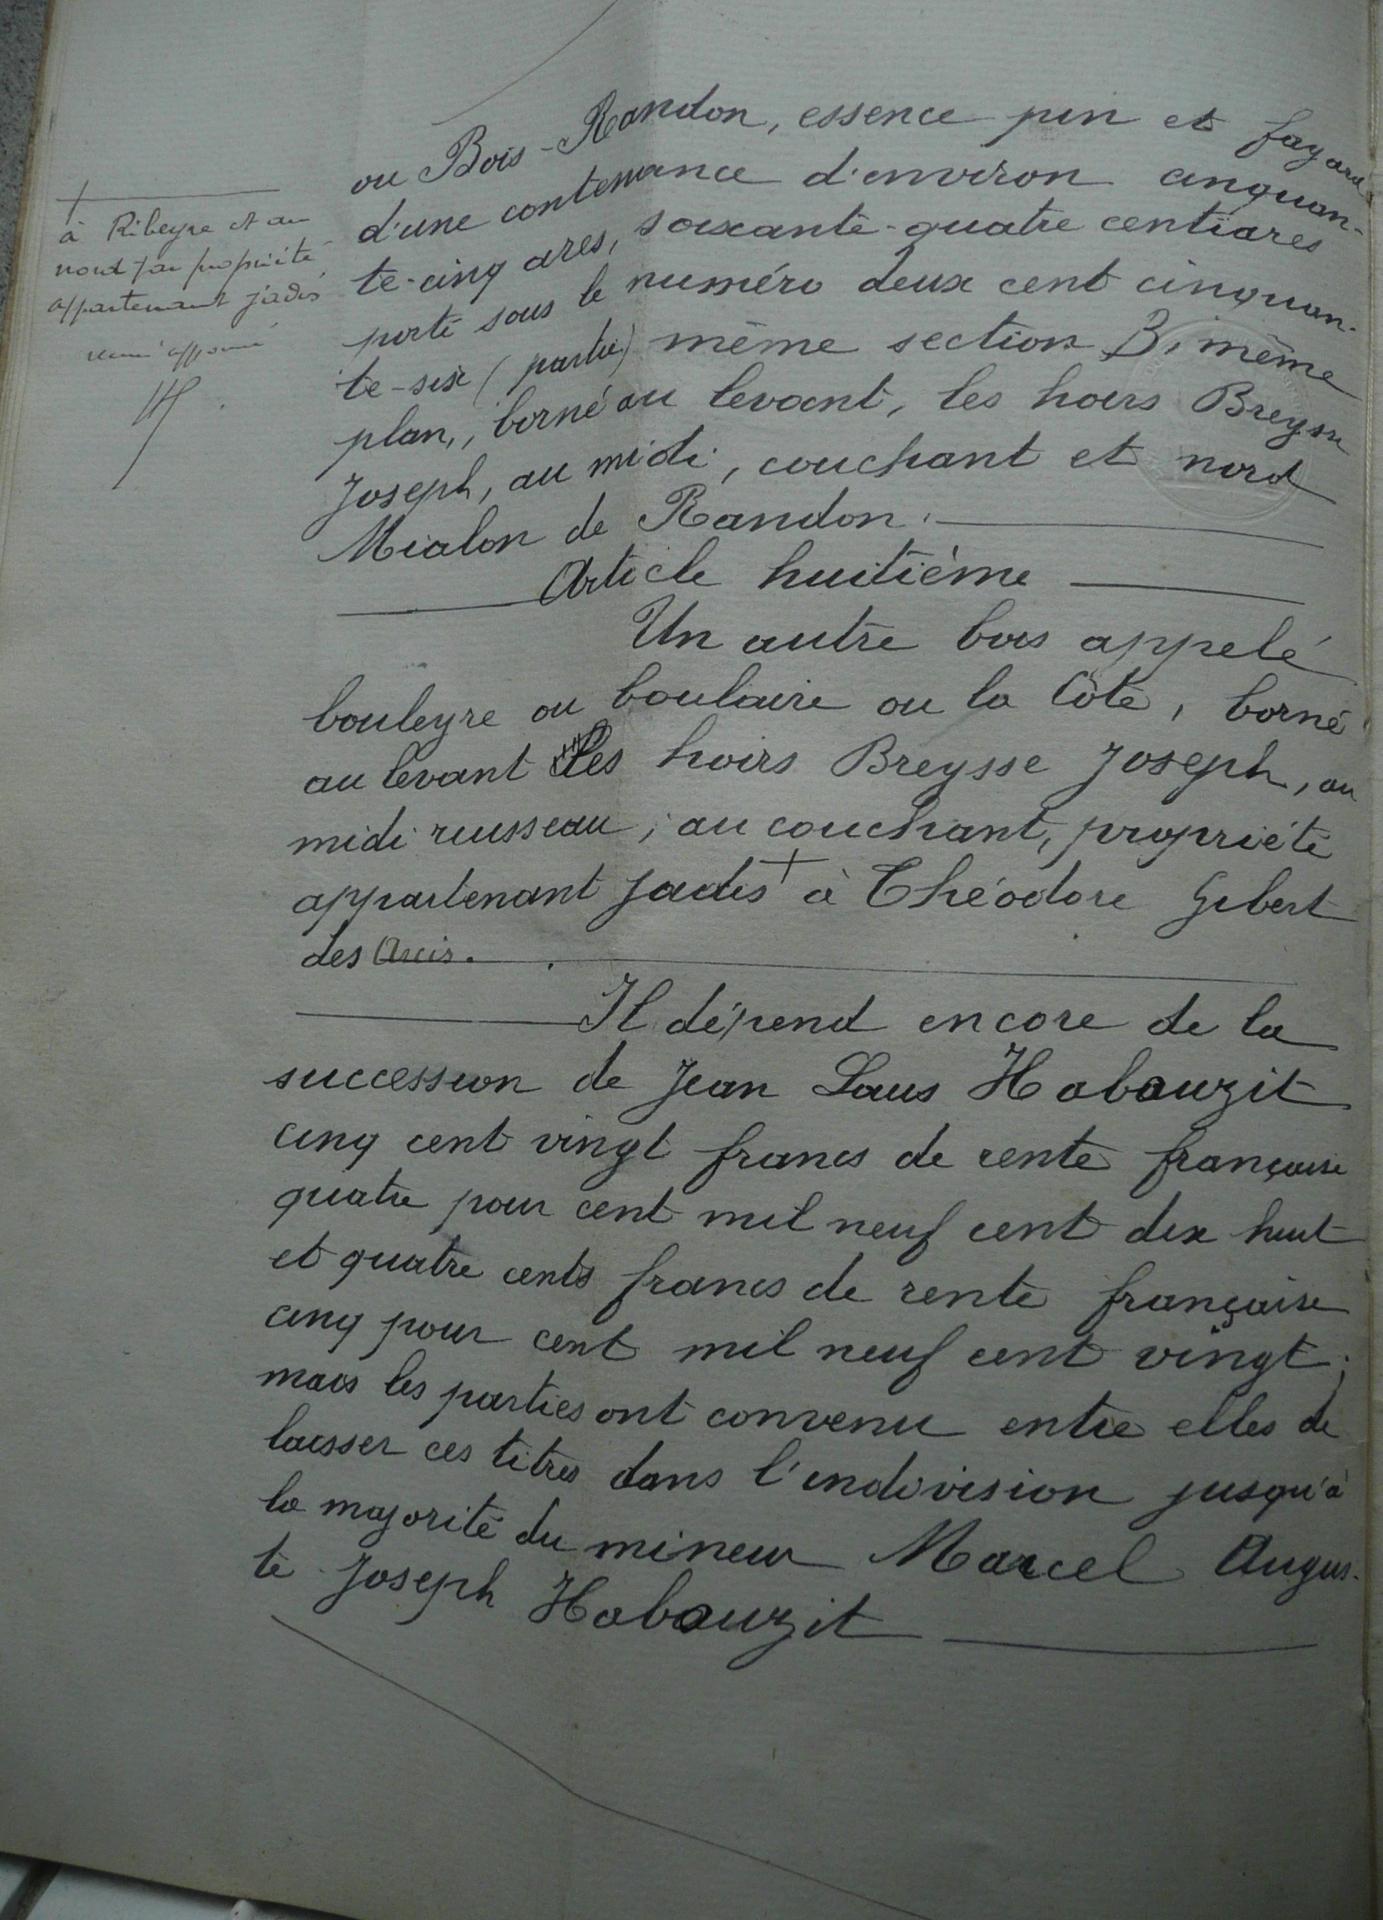 ou Bois-Randon, essence pin et fayard
d'une contenance d'environ cinquan-
te-cinq ares, soixante-quatre centiares
porté sous le numéro deux cent cinquan-
te-six (partie) même section B, même
plan, borné au levant, les hoirs Breysse
Joseph, au midi, couchant et nord
Mialon de Randon.
Article huitième
Un autre bois appelé
bouleyre ou boulaire ou la Côte, borné
au levant les hoirs Breysse Joseph, au
midi ruisseau, au couchant, propriété
appartenant jadis + à Théodore Gibert
des
Il dépend encore de la
succession de Jean Louis Habouzit
cinq cent vingt francs de rente française
quatre pour cent mil neuf cent dix huit
et quatre cents francs de rente française
cinq pour cent mil neuf cent vingt;
mais les parties ont convenu entre elles de
laisser ces titres dans l'indivision jusqu'à
la majorité du mineur Marcel Augus-
te Joseph Habouzit
+
à Ribeyre et au
nord par propriété
appartenant jadis